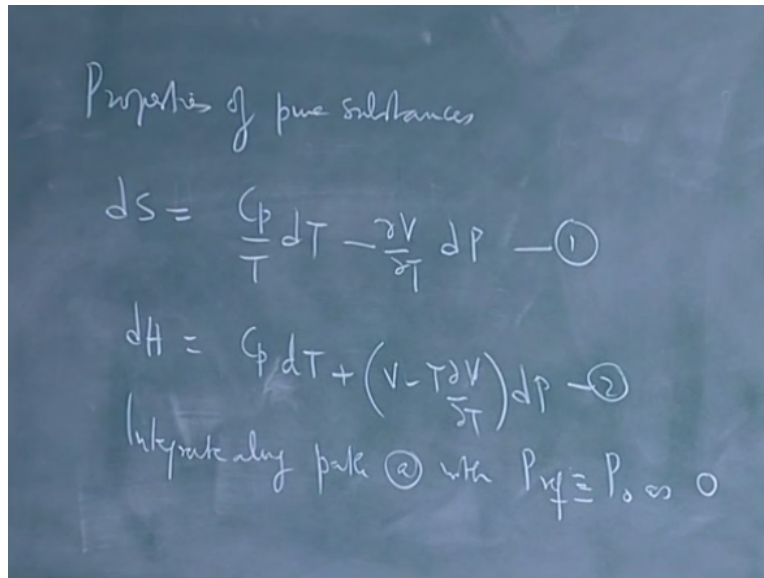 Properties of pure substances
dS = Cp/T dT - ∂V/∂T dP - ①
dH = Cp dT + (V - T ∂V/∂T) dP - ②
Integrate along path ⓐ with Pref ≡ P₀ as 0